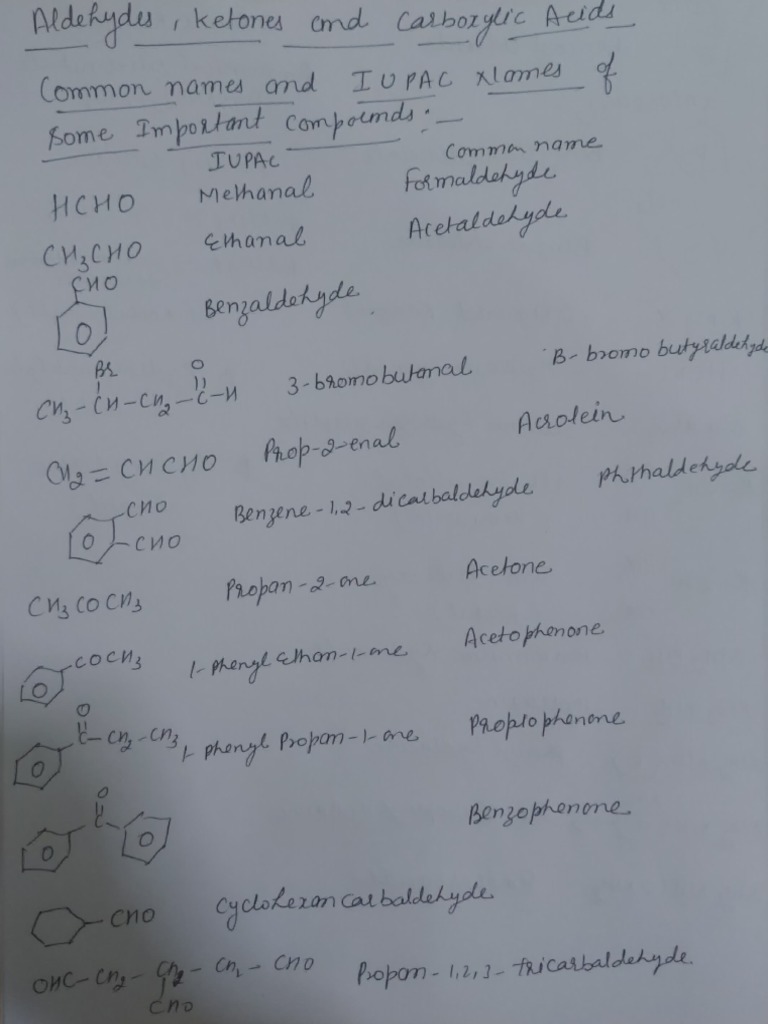 Aldehydes, ketones and Carboxylic Acids
Common names and IUPAC Names of
Some Important Compounds:-
IUPAC Common name
HCHO Methanal Formaldehyde
CH3CHO Ethanal Acetaldehyde
CHO
Benzaldehyde
Br O
CH3-CH-CH2-C-H 3-bromobutanal B-bromobutyraldehyde
CH2=CHCHO Prop-2-enal Acrolein
CHO
CHO Benzene-1,2-dicarbaldehyde Phthaldehyde
CH3COCH3 Propan-2-one Acetone
COCH3 1-Phenyl Ethan-1-one Acetophenone
O
C-CH2-CH3 1-Phenyl Propan-1-one Propiophenone
O
C Benzophenone
CHO Cyclohexan carbaldehyde
OHC-CH2-CH2-CH2-CHO Propan-1,2,3-tricarbaldehyde
CHO